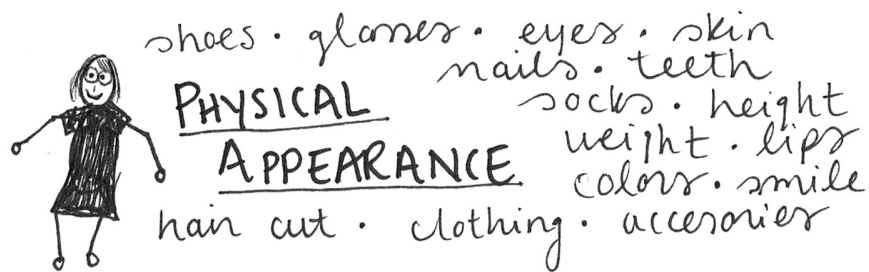 shoes · glasses · eyes · skin
nails · teeth
PHYSICAL
socks · height
weight · lips
APPEARANCE
colors · smile
hair cut · clothing · accesories